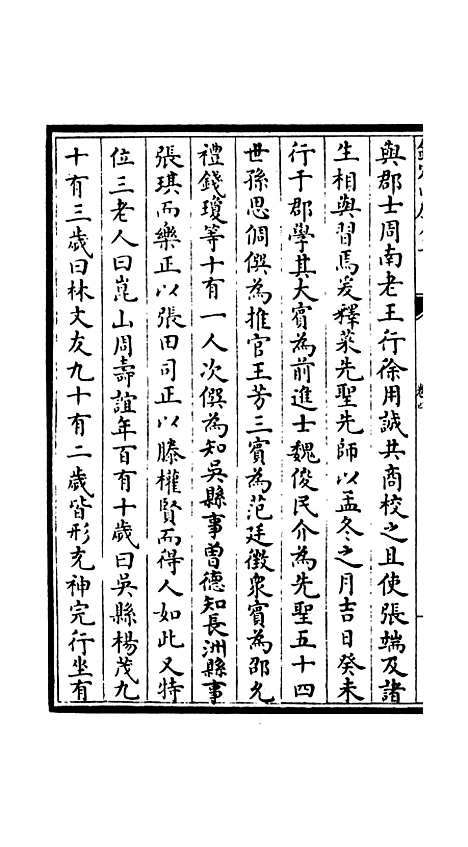 與郡士周南老王行徐用誠共商校之且使張端及諸
生相與習焉爰釋菜先聖先師以孟冬之月吉日癸未
行于郡學其大賓為前進士魏俊民介為先聖五十四
世孫思倜僎為推官王芳三賓為范廷徵衆賓為邵允
禮錢瓊等十有一人次僎為知吳縣事曽德知長洲縣事
張琪而樂正以張田司正以滕權賢而得人如此又特
位三老人曰崑山周壽誼年百有十歲曰吳縣楊茂九
十有三歲曰林文友九十有二歲皆形充神完行坐有